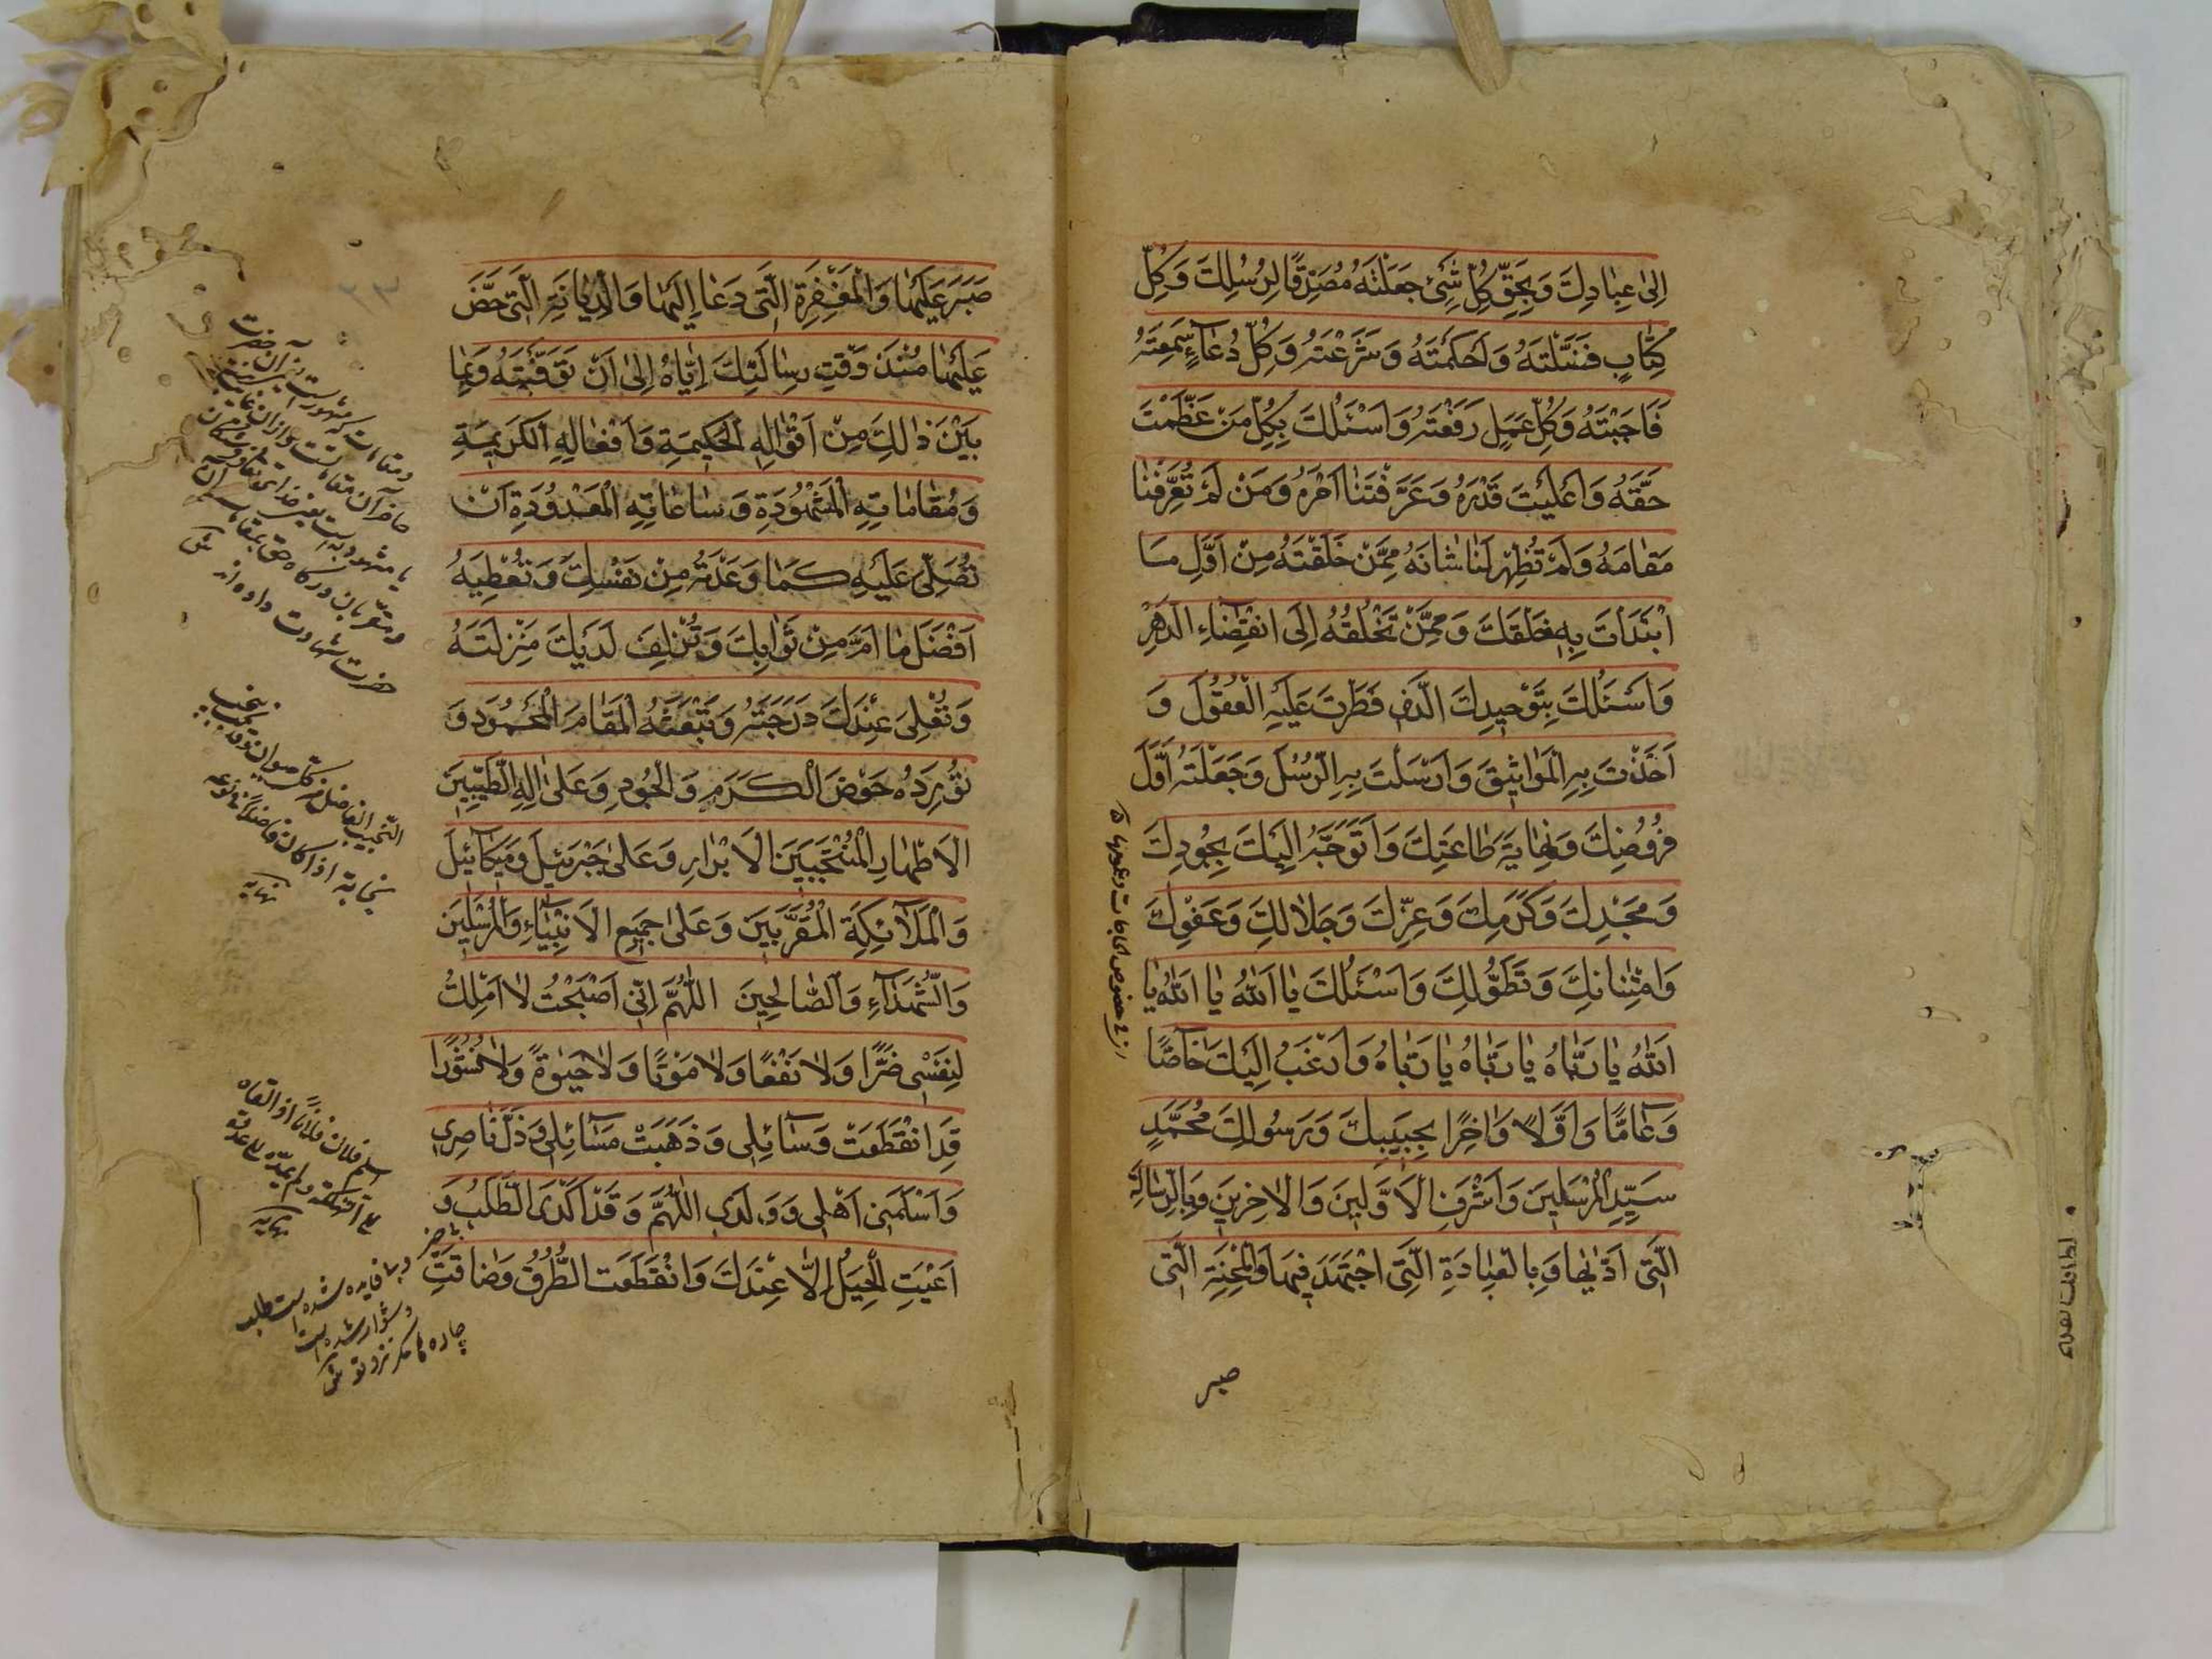 اِلىٰ عِبٰادِكَ وَبِحَقِّ كُلِّ شَىْءٍ جَعَلْتَهُ مُصَدِّقًا لِرُسُلِكَ وَكُلِّ
كِتٰابٍ فَصَّلْتَهُ وَاَحْكَمْتَهُ وَشَرَعْتَهُ وَكُلِّ دُعٰآءٍ سَمِعْتَهُ
فَاَجَبْتَهُ وَكُلِّ عَمَلٍ رَفَعْتَهُ وَاَسْئَلُكَ بِكُلِّ مَنْ عَظَّمْتَ
حَقَّهُ وَاَعْلَيْتَ قَدْرَهُ وَعَرَّفْتَنٰا اَمْرَهُ وَمَنْ لَمْ تُعَرِّفْنٰا
مَقٰامَهُ وَلَمْ تُظْهِرْ لَنٰا شَانَهُ مِمَّنْ خَلَقْتَهُ مِنْ اَوَّلِ مٰا
ابْتَدَاْتَ بِهِ خَلْقَكَ وَمِمَّنْ تَخْلُقُهُ اِلَى انْقِضٰاءِ الدَّهْرِ
وَاَسْئَلُكَ بِتَوْحِيدِكَ الَّذِى فَطَرْتَ عَلَيْهِ الْعُقُولَ وَ
اَخَذْتَ بِهِ الْمَوٰاثِيقَ وَاَرْسَلْتَ بِهِ الرُّسُلَ وَجَعَلْتَهُ اَوَّلَ
فُرُوضِكَ وَنِهٰايَةَ طٰاعَتِكَ وَاَتَوَجَّهُ اِلَيْكَ بِجُودِكَ
وَمَجْدِكَ وَكَرَمِكَ وَعِزِّكَ وَجَلٰالِكَ وَعَفْوِكَ
وَامْتِنٰانِكَ وَتَطَوُّلِكَ وَاَسْئَلُكَ يٰا اَللّٰهُ يٰا اَللّٰهُ يٰا
اَللّٰهُ يٰا رَبّٰاهُ يٰا رَبّٰاهُ يٰا رَبّٰاهُ وَاَرْغَبُ اِلَيْكَ خٰآصًّا
وَعٰآمًّا وَاَوَّلًا وَاٰخِرًا بِحَبِيبِكَ وَرَسُولِكَ مُحَمَّدٍ
سَيِّدِ الْمُرْسَلِينَ وَاَشْرَفِ الْاَوَّلِينَ وَالْاٰخِرِينَ وَبِالرِّسٰالَةِ
الَّتِى اَدّٰيٰهٰا وَبِالْعِبٰادَةِ الَّتِى اجْتَهَدَ فِيهٰا وَالْمِحْنَةِ الَّتِى
صبر
صَبَرَ عَلَيْهٰا وَالْمَغْفِرَةِ الَّتِى دَعٰا اِلَيْهٰا وَالدِّيٰانَةِ الَّتِى حَضَّ
عَلَيْهٰا مُنْذُ وَقْتِ رِسٰالَتِكَ اِيّٰاهُ اِلىٰ اَنْ تَوَفَّيْتَهُ وَبِمٰا
بَيْنَ ذٰلِكَ مِنْ اَقْوٰالِهِ الْحَكِيمَةِ وَاَفْعٰالِهِ الْكَرِيمَةِ
وَمَقٰامٰاتِهِ الْمَشْهُودَةِ وَسٰاعٰاتِهِ الْمَعْدُودَةِ اَنْ
تُصَلِّىَ عَلَيْهِ كَمٰا وَعَدْتَهُ مِنْ نَفْسِكَ وَتُعْطِيَهُ
اَفْضَلَ مٰا اَمَّلَ مِنْ ثَوٰابِكَ وَتُزْلِفَ لَدَيْكَ مَنْزِلَتَهُ
وَتُعْلِىَ عِنْدَكَ دَرَجَتَهُ وَتَبْعَثَهُ الْمَقٰامَ الْمَحْمُودَ وَ
تُورِدَهُ حَوْضَ الْكَرَمِ وَالْجُودِ وَعَلىٰ اٰلِهِ الطَّيِّبِينَ
الْاَطْهٰارِ الْمُنْتَجَبِينَ الْاَبْرٰارِ وَعَلىٰ جَبْرَئِيلَ وَمِيكٰآئِيلَ
وَالْمَلٰآئِكَةِ الْمُقَرَّبِينَ وَعَلىٰ جَمِيعِ الْاَنْبِيٰآءِ وَالْمُرْسَلِينَ
وَالشُّهَدٰآءِ وَالصّٰالِحِينَ اَللّٰهُمَّ اِنِّى اَصْبَحْتُ لٰا اَمْلِكُ
لِنَفْسِى ضَرًّا وَلٰا نَفْعًا وَلٰا مَوْتًا وَلٰا حَيٰوةً وَلٰا نُشُورًا
قَدِ انْقَطَعَتْ وَسٰآئِلِى وَذَهَبَتْ مَسٰآئِلِى وَذَلَّ نٰاصِرِى
وَاَسْلَمَنِى اَهْلِى وَوَلَدِى اَللّٰهُمَّ وَقَدْ اَكْدَى الطَّلَبُ وَ
اَعْيَتِ الْحِيَلُ اِلّٰا عِنْدَكَ وَانْقَطَعَتِ الطُّرُقُ وَضٰاقَتِ
حضرت شهادت داده اند
النجيب الفاضل من كل حيوان وقد نجب
نجابة اذا كان فاضلا فى نوعه
نهايه
اسلم فلان فلانا اذا القاه
نهايه
وبى فايده شده است طلب
دشوار شده است
چاره ها مگر نزد تو